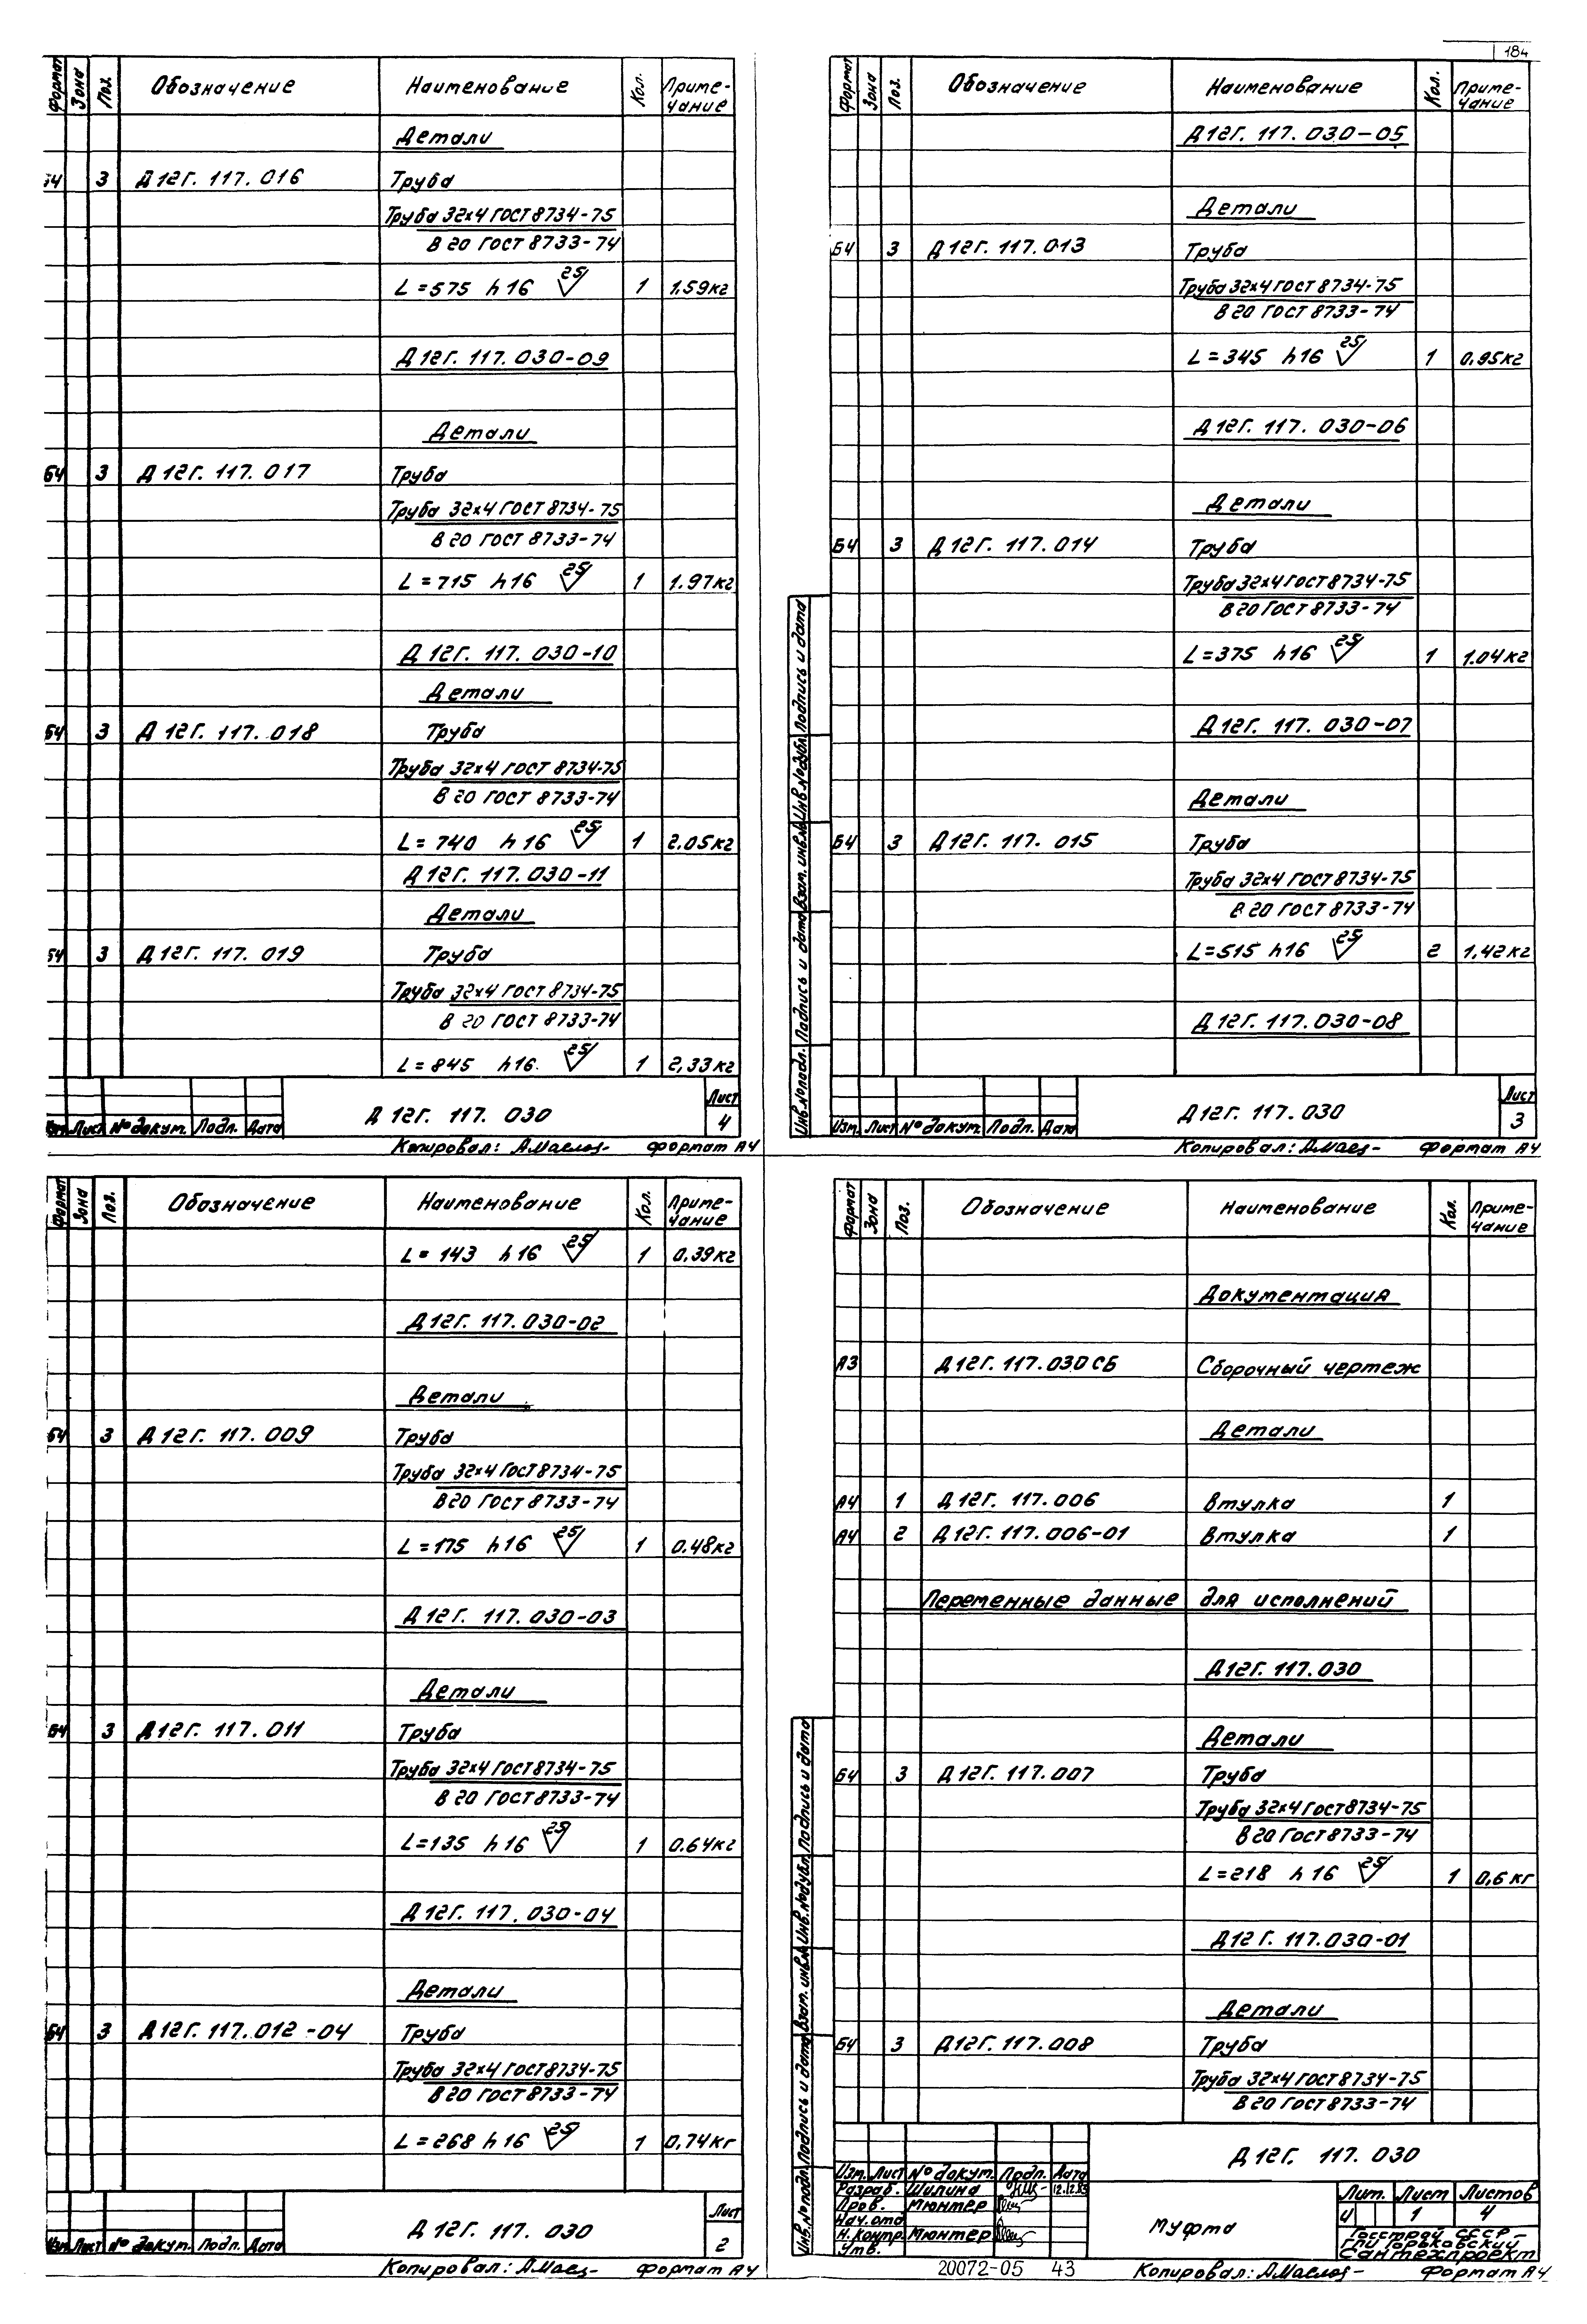 184
Формат Зона Поз. Обозначение Наименование Кол. Приме-
чание
Детали
Б4 3 Д12Г. 117. 016 Труба
Труба 32х4 ГОСТ 8734-75
В 20 ГОСТ 8733-74
L=575 h16 25 1 1.59кг
Д12Г. 117. 030-09
Детали
Б4 3 Д12Г. 117. 017 Труба
Труба 32х4 ГОСТ 8734-75
В 20 ГОСТ 8733-74
L=715 h16 25 1 1.97кг
Д12Г. 117. 030-10
Детали
Б4 3 Д12Г. 117. 018 Труба
Труба 32х4 ГОСТ 8734-75
В 20 ГОСТ 8733-74
L=740 h16 25 1 2.05кг
Д12Г. 117.030-11
Детали
Б4 3 Д12Г. 117. 019 Труба
Труба 32х4 ГОСТ 8734-75
В 20 ГОСТ 8733-74
L=845 h16 25 1 2,33кг
Изм. Лист № докум. Подп. Дата
Д12Г. 117. 030
Лист
4
Копировал: А.Маслоз- Формат А4
Формат Зона Поз. Обозначение Наименование Кол. Приме-
чание
Д12Г. 117. 030-05
Детали
Б4 3 Д12Г. 117. 013 Труба
Труба 32х4 ГОСТ 8734-75
В 20 ГОСТ 8733-74
L=345 h16 25 1 0,95кг
Д12Г. 117. 030-06
Детали
Б4 3 Д12Г. 117. 014 Труба
Труба 32х4 ГОСТ 8734-75
В 20 ГОСТ 8733-74
L=375 h16 25 1 1.04кг
Д12Г. 117. 030-07
Детали
Б4 3 Д12Г. 117. 015 Труба
Труба 32х4 ГОСТ 8734-75
В 20 ГОСТ 8733-74
L=515 h16 25 2 1,42кг
Д12Г. 117.030-08
Инв.№подл. Подпись и дата Взам. инв.№ Инв.№дубл. Подпись и дата
Изм. Лист № докум. Подп. Дата
Д12Г. 117. 030
Лист
3
Копировал: Формат А4
Формат Зона Поз. Обозначение Наименование Кол. Приме-
чание
L=143 h16 25 1 0.39кг
Д12Г. 117.030-02
Детали
Б4 3 Д12Г. 117. 009 Труба
Труба 32х4 ГОСТ 8734-75
В 20 ГОСТ 8733-74
L=175 h16 25 1 0.48кг
Д12Г. 117. 030-03
Детали
Б4 3 Д12Г. 117. 011 Труба
Труба 32х4 ГОСТ 8734-75
В 20 ГОСТ 8733-74
L=135 h16 25 1 0.64кг
Д12Г. 117. 030-04
Детали
Б4 3 Д12Г. 117. 012-04 Труба
Труба 32х4 ГОСТ 8734-75
В 20 ГОСТ 8733-74
L=268 h16 25 1 0,74кг
Изм. Лист № докум. Подп. Дата
Д12Г. 117. 030
Лист
2
Копировал: Формат А4
Формат Зона Поз. Обозначение Наименование Кол. Приме-
чание
Документация
А3 Д12Г. 117.030 СБ Сборочный чертеж
Детали
А4 1 Д12Г. 117. 006 Втулка 1
А4 2 Д12Г. 117.006-01 Втулка 1
Переменные данные для исполнений
Д12Г. 117.030
Детали
Б4 3 Д12Г. 117.007 Труба
Труба 32х4 ГОСТ 8734-75
В 20 ГОСТ 8733-74
L=218 h16 25 1 0,6 кг
Д12Г. 117.030-01
Детали
Б4 3 Д12Г. 117.008 Труба
Труба 32х4 ГОСТ 8734-75
В 20 ГОСТ 8733-74
Инв.№подл. Подпись и дата Взам. инв.№ Инв.№дубл. Подпись и дата
Д12Г. 117. 030
Изм. Лист № докум. Подп. Дата
Разраб. Шилина 12.12.83
Пров. Мюнтер
Нач.отд
Н.контр. Мюнтер
Утв.
Муфта
Лит. Лист Листов
И 1 4
Госстрой СССР
ГПИ Горьковский
Сантехпроект
20072-05 43
Копировал: А.Маслоз- Формат А4